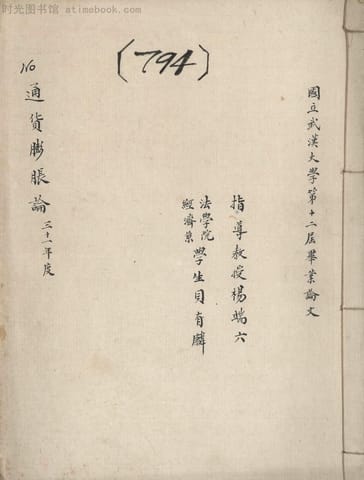 时光图书馆 - atimebook.com
(794)
國立武漢大學第十二屆畢業論文
指導教授楊端六
法學院
經濟系
學生貝有麟
16
通貨膨脹論 三十一年度